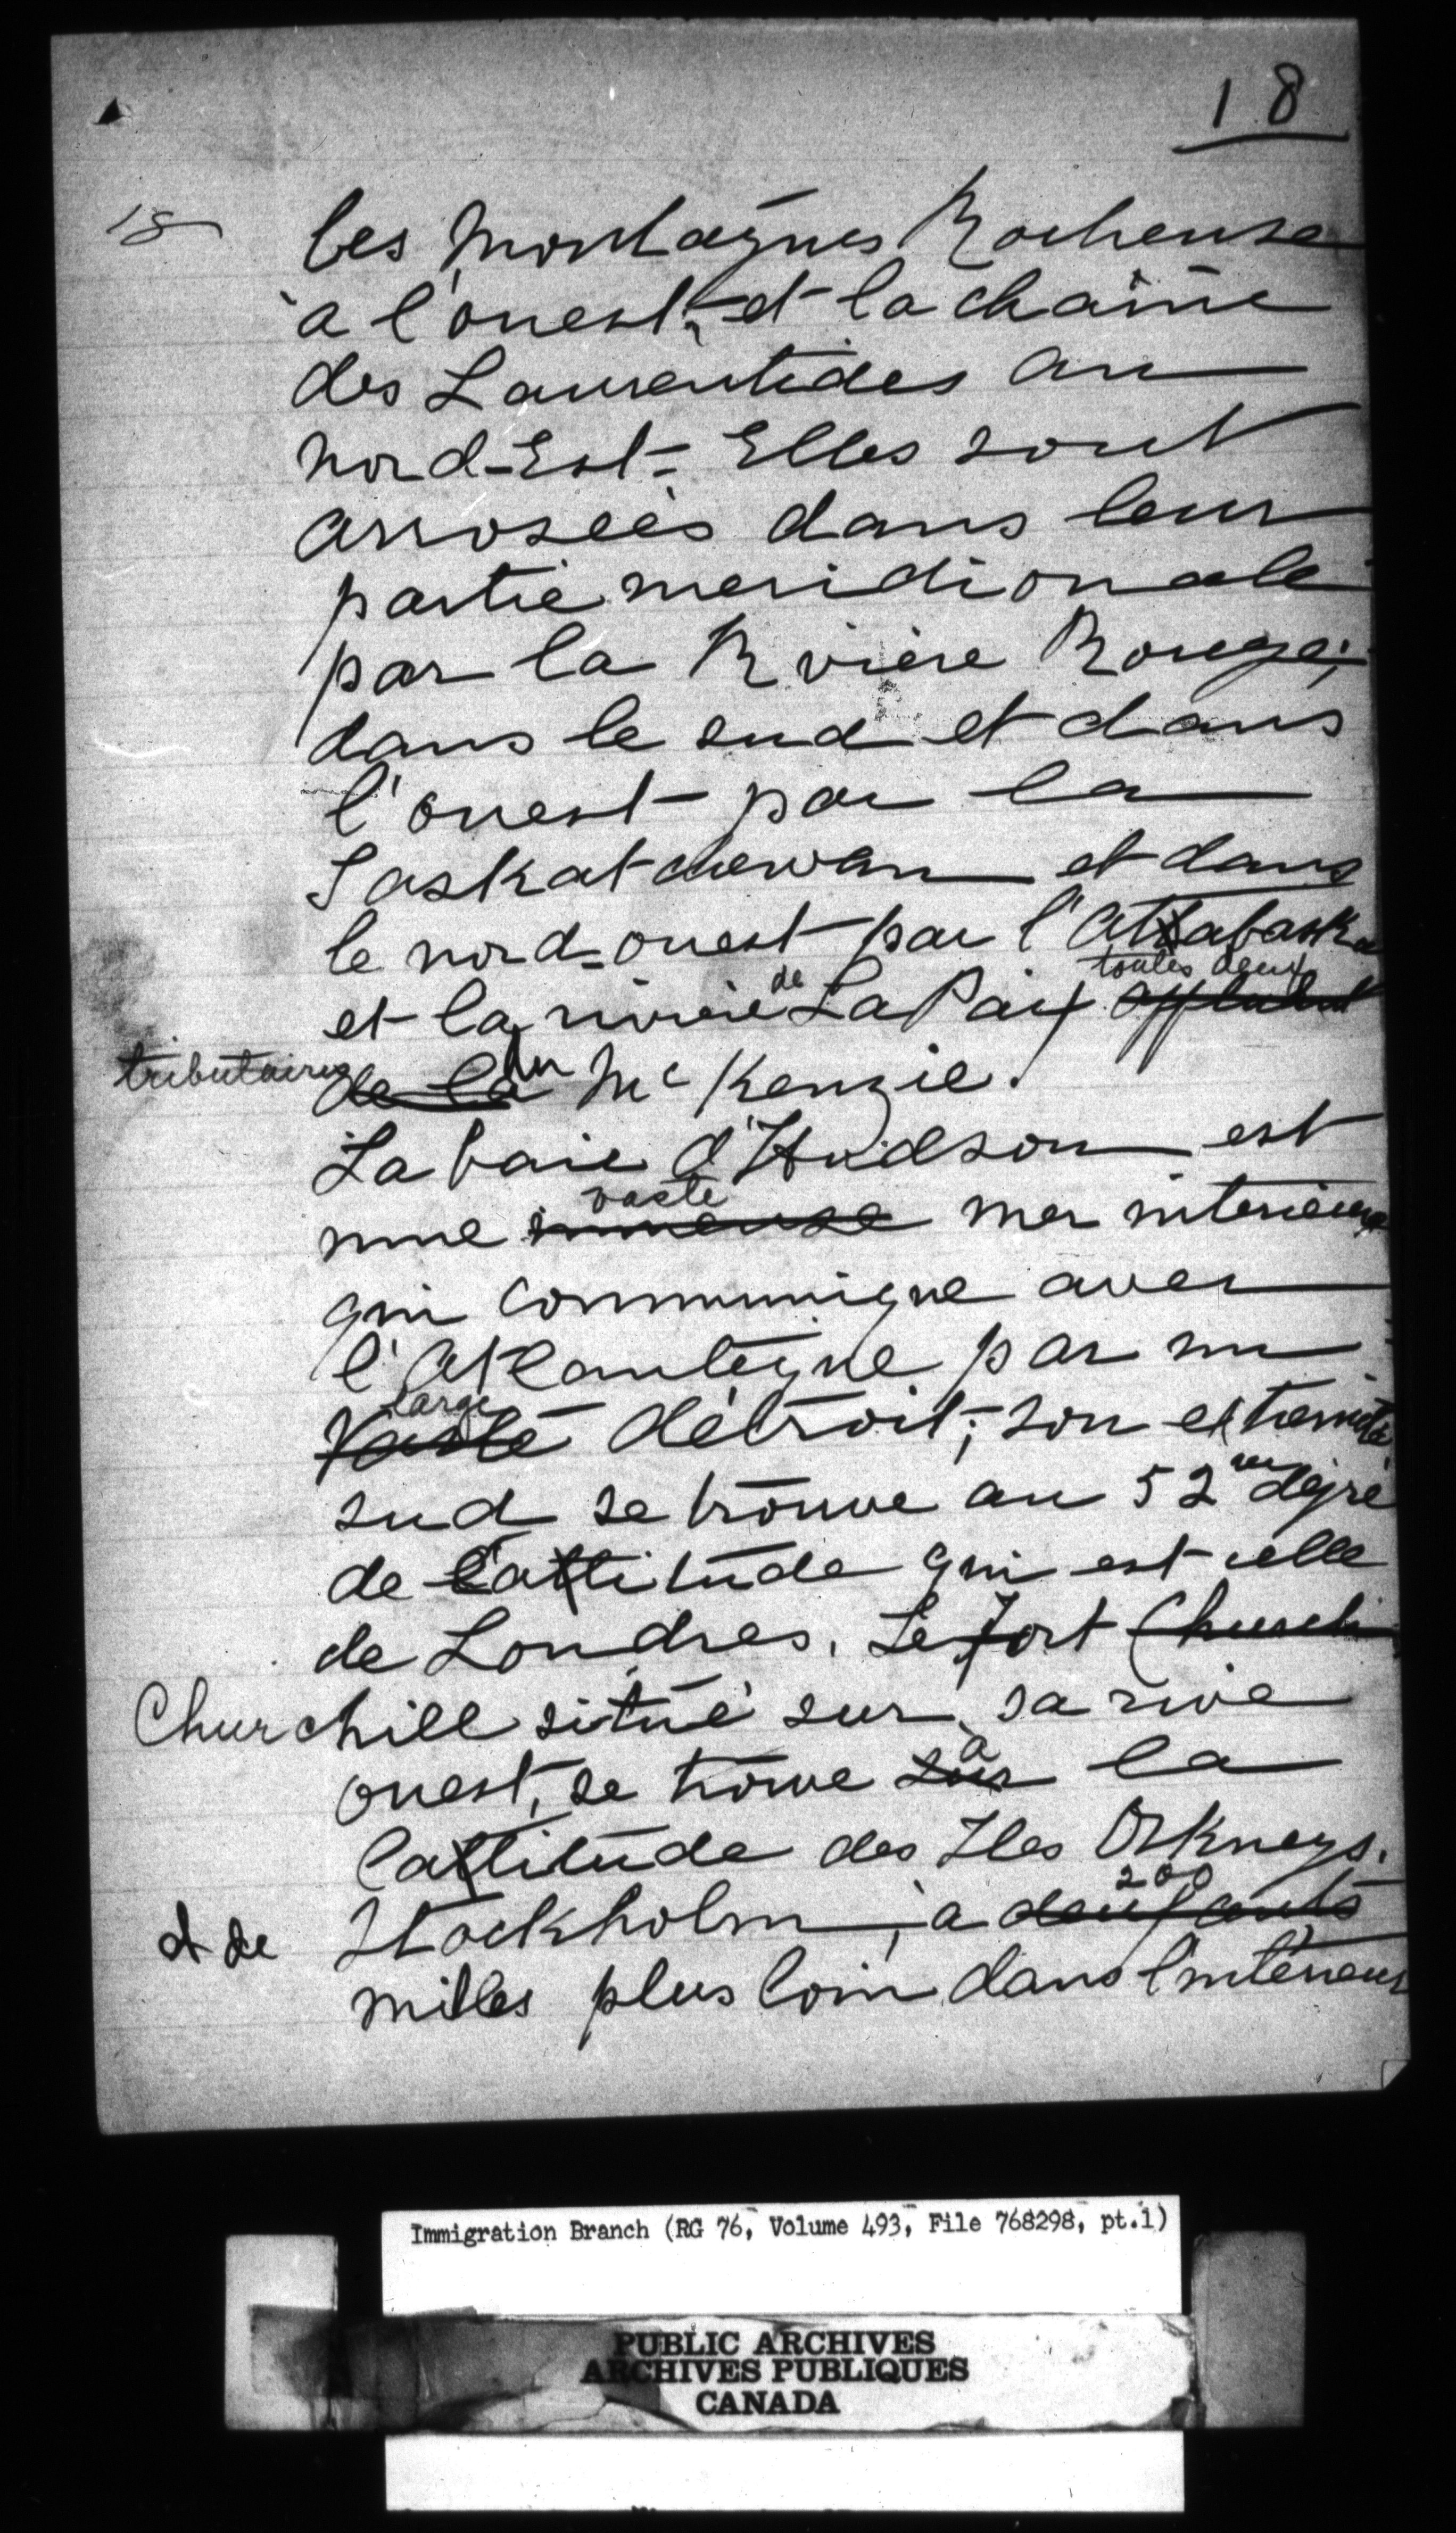 18
18
les Montagnes Rocheuse
à l'ouest, et la chaîne
des Laurentides au
nord-Est - Elles sont
arrosées dans leur
partie meridionale
par la Rivière Rouge;
dans le sud et dans
l'ouest par la
Saskatchewan et dans
le nord-ouest par l'Attabaska
et la rivière de La Paix toutes deux
tributaires de la du McKenzie.
La baie d'Hudson est
une immense vaste mer interieure
qui communique avec
l'Atlantique par un
Vaste large détroit; son extremité
sud se trouve au 52me dégré
de lattitude qui est celle
de Londres. Le fort Churchi
Churchill situé sur sa rive
ouest, se trouve sur à la
lattitude des Iles Orkneys.
et de Stockholm, à deux cents 200
milles plus loin dans l'intérieur
Immigration Branch (RG 76, Volume 493, File 768298, pt.1)
PUBLIC ARCHIVES
ARCHIVES PUBLIQUES
CANADA